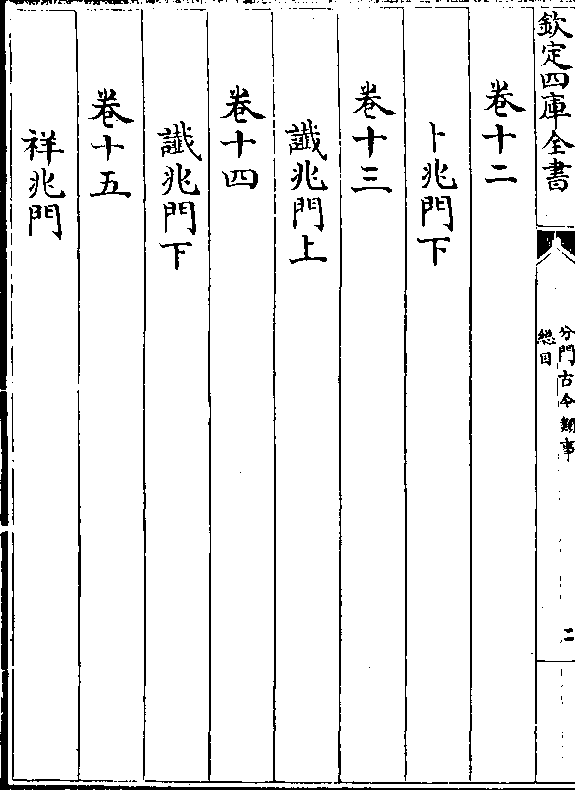 欽定四庫全書
分門古今類事
總目
二
卷十二
卜兆門下
卷十三
讖兆門上
卷十四
讖兆門下
卷十五
祥兆門